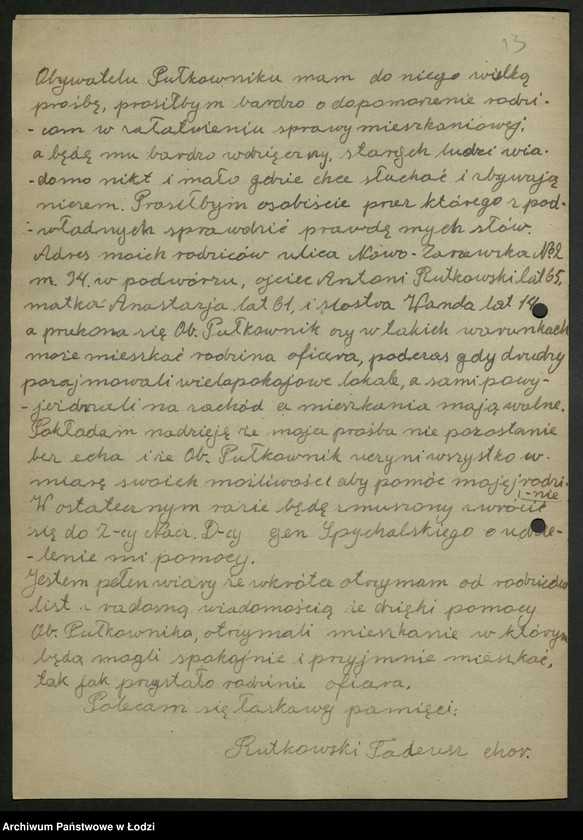 13
Obywatelu Pułkowniku mam do niego wielką
prośbę, prosiłbym bardzo o dopomorzenie rodzi-
-com w załatwieniu sprawy mieszkaniowej,
a będę mu bardzo wdzięczny, starych ludzi wia-
-domo nikt i mało gdzie chce słuchać i zbywają
niczem. Prosiłbym osobiście przez którego z pod-
-władnych sprawdzić prawdę mych słów.
Adres moich rodziców ulica Nowo-Zarzewska № 2
m. 34. w podwórzu, ojciec Antoni Rutkowski lat 65,
matka Anastazja lat 61, i siostra Wanda lat 14
a przekona się Ob. Pułkownik czy w takich warunkach
może mieszkać rodzina oficera, podczas gdy drudzy
pozajmowali wielopokojowe lokale, a sami powy-
-jeżdzali na zachód a mieszkania mają wolne.
Pokładam nadzieję że moja prośba nie pozostanie
bez echa i że Ob. Pułkownik uczyni wszystko w-
miarę swoich możliwości aby pomóc mojej rodzi-
-nie.
W ostatecznym razie będę zmuszony zwrócić
się do Z-cy Nacz. D-cy gen Spychalskiego o udzie-
-lenie mi pomocy.
Jestem pełen wiary że wkrótce otrzymam od rodziców
list z radosną wiadomością że dzięki pomocy
Ob. Pułkownika, otrzymali mieszkanie w którym
będą mogli spokojnie i przyjmnie mieszkać,
tak jak przystało rodzinie oficera.
Polecam się łaskawej pamięci:
Rutkowski Tadeusz chor.
Archiwum Państwowe w Łodzi